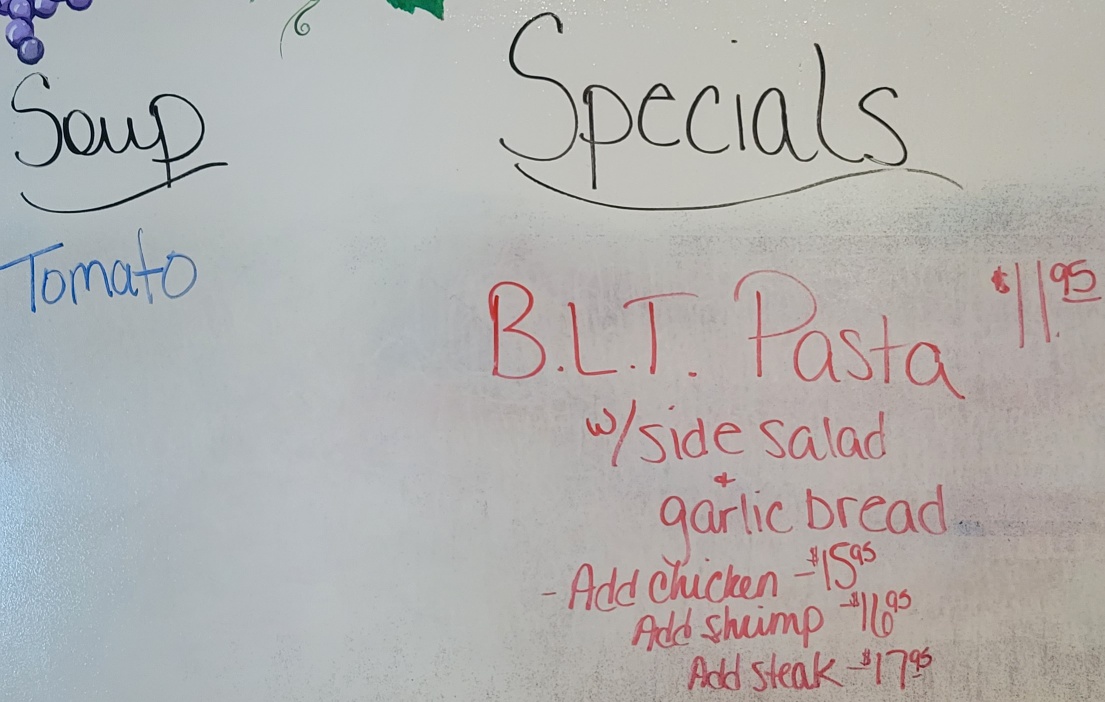 Soup
Tomato
Specials
B.L.T. Pasta $11.95
w/side salad
+
garlic bread
- Add chicken - $15.95
Add shrimp - $16.95
Add steak - $17.95